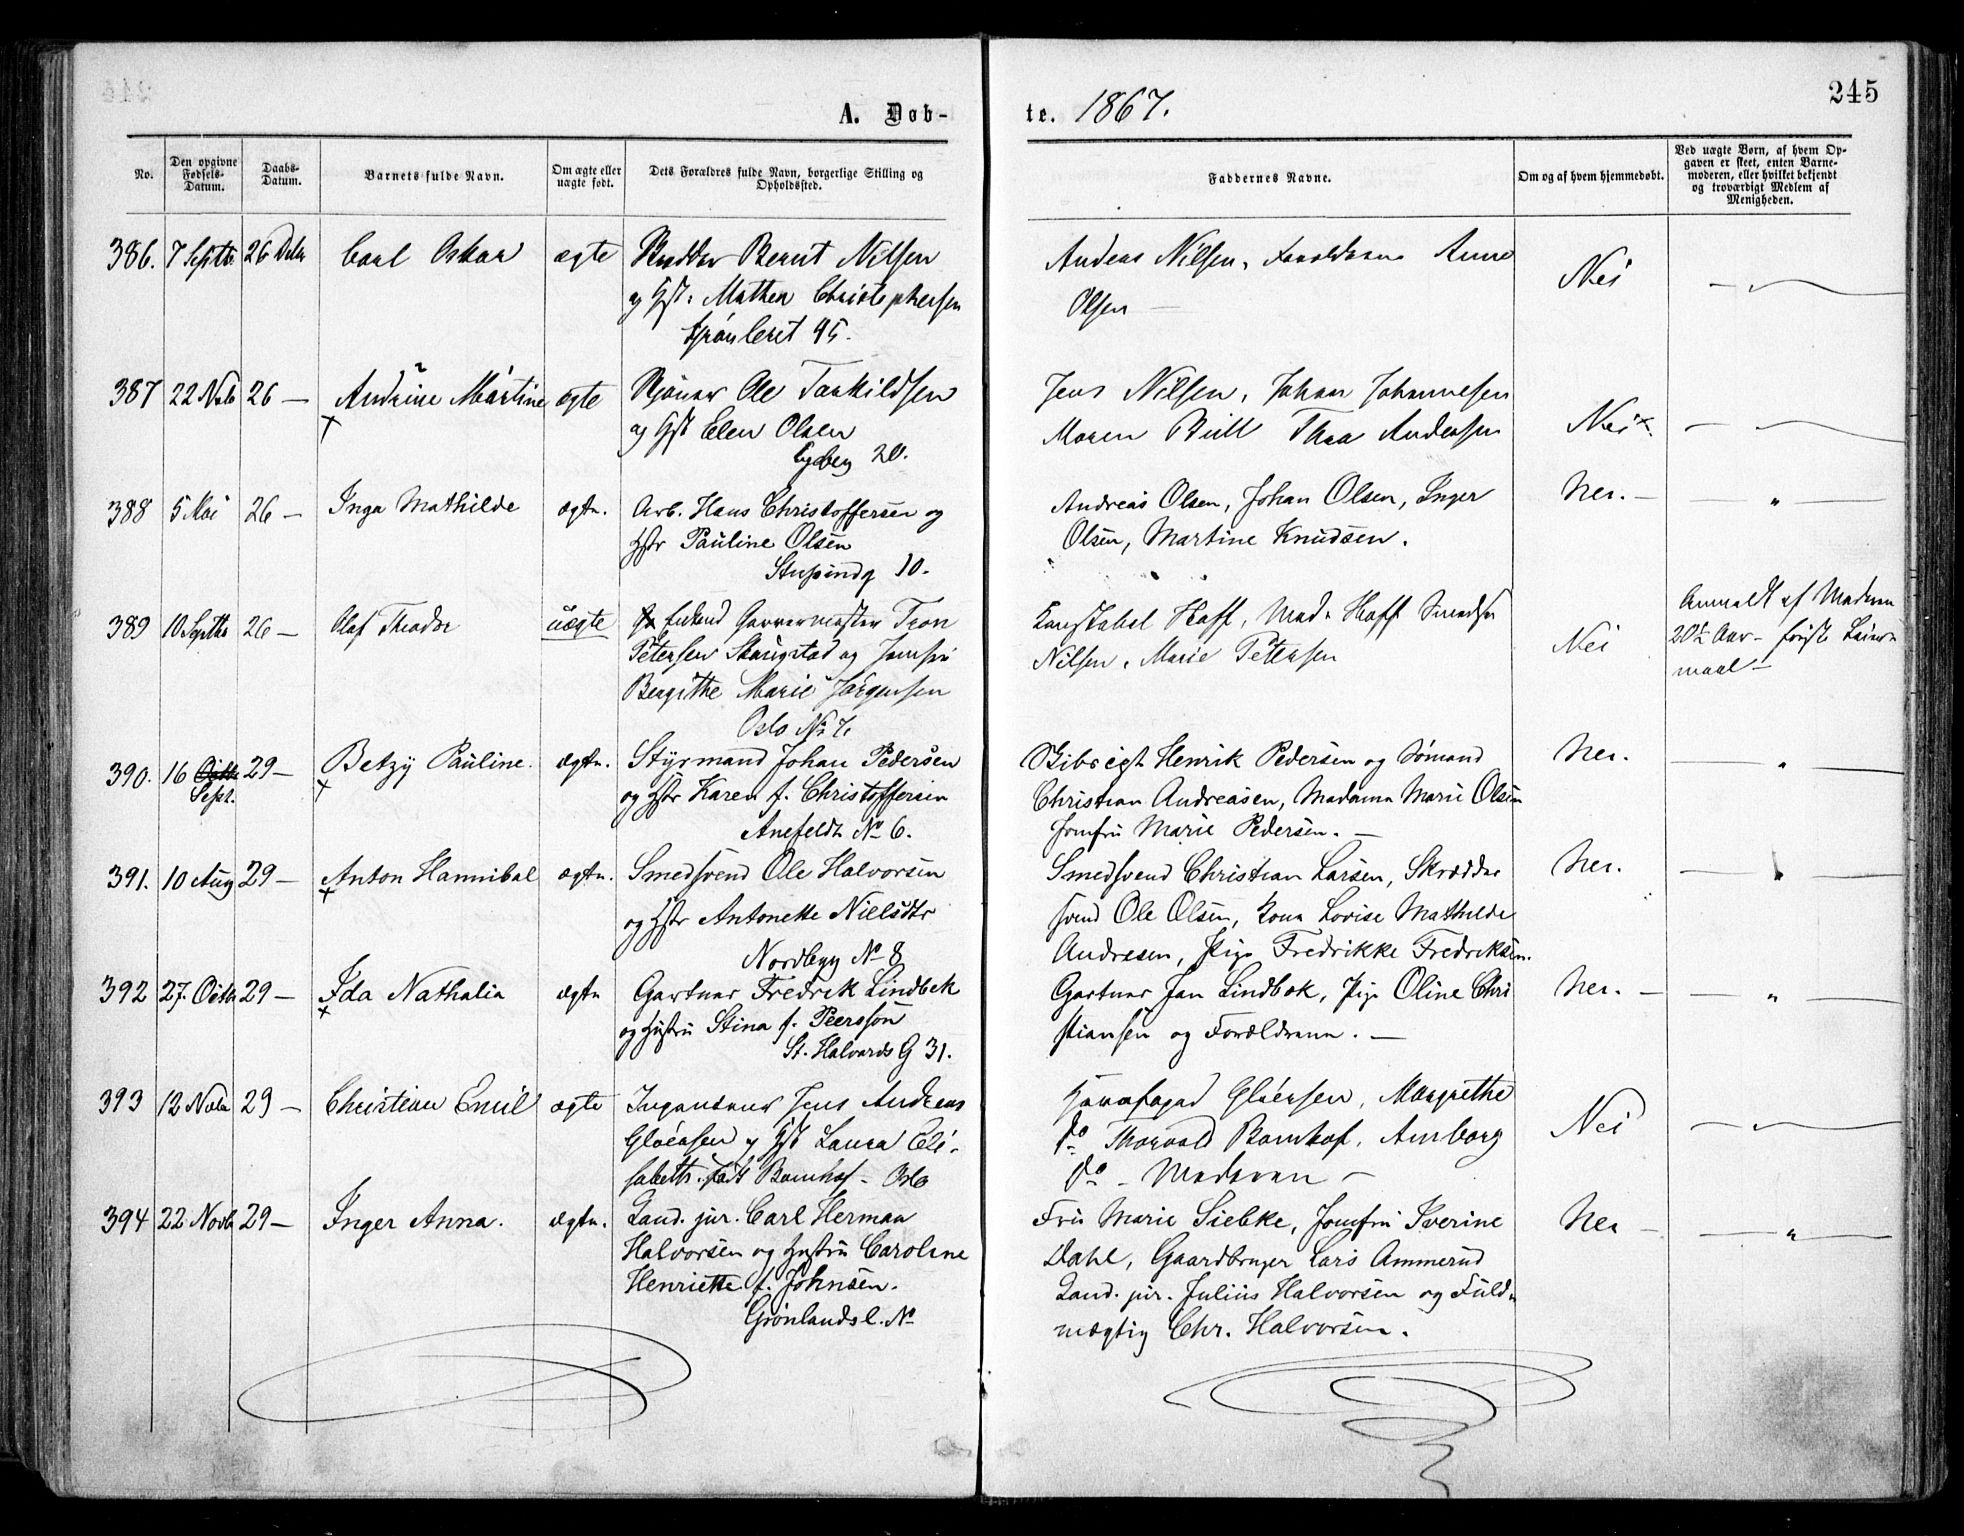 245
A. Døb-
te. 1867.
No.
Den opgivne Fødsels-Datum.
Daabs-Datum.
Barnets fulde Navn.
Om ægte eller uægte født.
Dets Forældres fulde Navn, borgerlige Stilling og Opholdssted.
Faddernes Navne.
Om og af hvem hjemmedøbt.
Ved uægte Børn, af hvem Opgaven er skeet, enten Barnemoderen, eller hvilket bekjendt og troværdigt Medlem af Menigheden.
386. 7 Septb. 26 Decbr Carl Oskar ægte Skrædder Bernt Nilsen
og Hst. Mathea Christophersen
Grønleret 45.
Andreas Nilsen, Forældrene Anne
Olsen —
Nei
387 22 Novb 26 — Andrine Martine ægte Skjønner Ole Tarkildsen
og Hst Elen Olsen
Egeberg 20.
Jens Nilsen, Johan Johannesen
Maren Bull Thea Andersen
Nei x.
388 5 Mai 26 — Inga Mathilde ægte. Arb. Hans Christoffersen og
Hstr Pauline Olsen
10.
Andreas Olsen, Johan Olsen, Inger
Olsen, Martine Knudsen.
Nei. — „ —
389 10 Septb 26 — Olaf Theodor uægte Garvermester Tron
Petersen Skaugstad og Jomfru
Bergithe Marie Jørgensen
Oslo No 7.
Konstabel Hoff, Mad. Hoff
Nilsen, Marie Pettersen
Nei
Anmeldt af Moderen
20½ Aar — første Leier-
maal —
390. 16 Octbr Sept. 29 — Betzy Pauline. ægte. Styrmand Johan Pedersen
og Hstr Karen f. Christoffersen
Anefeldt No 6.
Skibsrigt Henrik Pedersen og Sømand
Christian Andreasen, Madama Marie Olsen
Jomfru Marie Pedersen. —
Nei. — „ —
391. 10 Aug 29 — Anton Hannibal ægte. Smedsvend Ole Halvorsen
og Hstr Antonette Nielsdtr
Nordbyg No 8
Smedsvend Christian Larsen, Skrædder
svend Ole Olsen, Kona Lovise Mathilde
Andresen, Pige Fredrikke Fredriksen.
Nei. — „ —
392 27. Octb 29 — Ida Nathalia ægte Gartner Fredrik Lindbek
og Hustru Stina f. Peersson
St. Halvards G 31.
Gartner Jan Lindbok, Pige Oline Chri
stiansen og Forældrene. —
Nei. — „ —
393 12 Novb 29 — Christian Emil ægte Ingeniør Jens Andreas
Gløersen og Hst Laura Eli-
sabeth født Bomhof — Oslo
Havnefoged Gløersen, Margrethe
do Thorvald Bomhof, Amborg
do — Moderen —
Nei
394 22 Novb 29 — Inger Anna. ægte. Cand. jur. Carl Herman
Halvorsen og Hustru Caroline
Henriette f. Johnsen.
Grønlandsl. No
Fru Marie Siebke, Jomfru Iverine
Dahl, Gaardbruger Lars Ammerud
Cand. jur. Julius Halvorsen og Fuld-
mægtig Chr. Halvorsen.
Nei — „ —